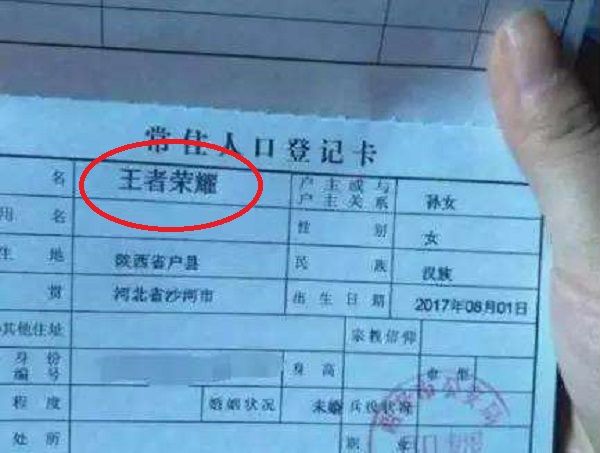 常住人口登记卡
名 王者荣耀 户主或与户主关系 孙女
用名 性别 女
生地 陕西省户县 民族 汉族
贯 河北省沙河市 出生日期 2017年08月01日
其他住址 宗教信仰
身份编号 身高
程度 婚姻状况 未婚 兵役状况
处所 职业